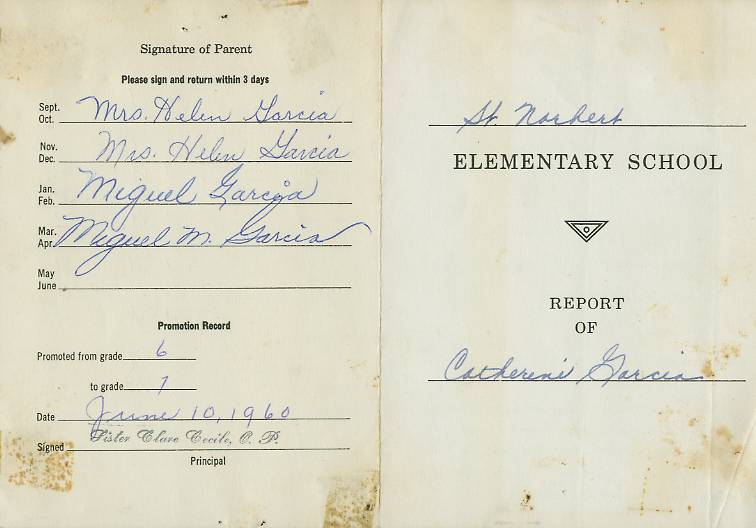 Signature of Parent
Please sign and return within 3 days
Sept.
Oct. Mrs. Helen Garcia
Nov.
Dec. Mrs. Helen Garcia
Jan.
Feb. Miguel Garcia
Mar.
Apr. Miguel M. Garcia
May
June
Promotion Record
Promoted from grade 6
to grade 7
Date June 10, 1960
Signed Sister Clare Cecile, O. P.
Principal
St. Norbert
ELEMENTARY SCHOOL
REPORT
OF
Catherine Garcia